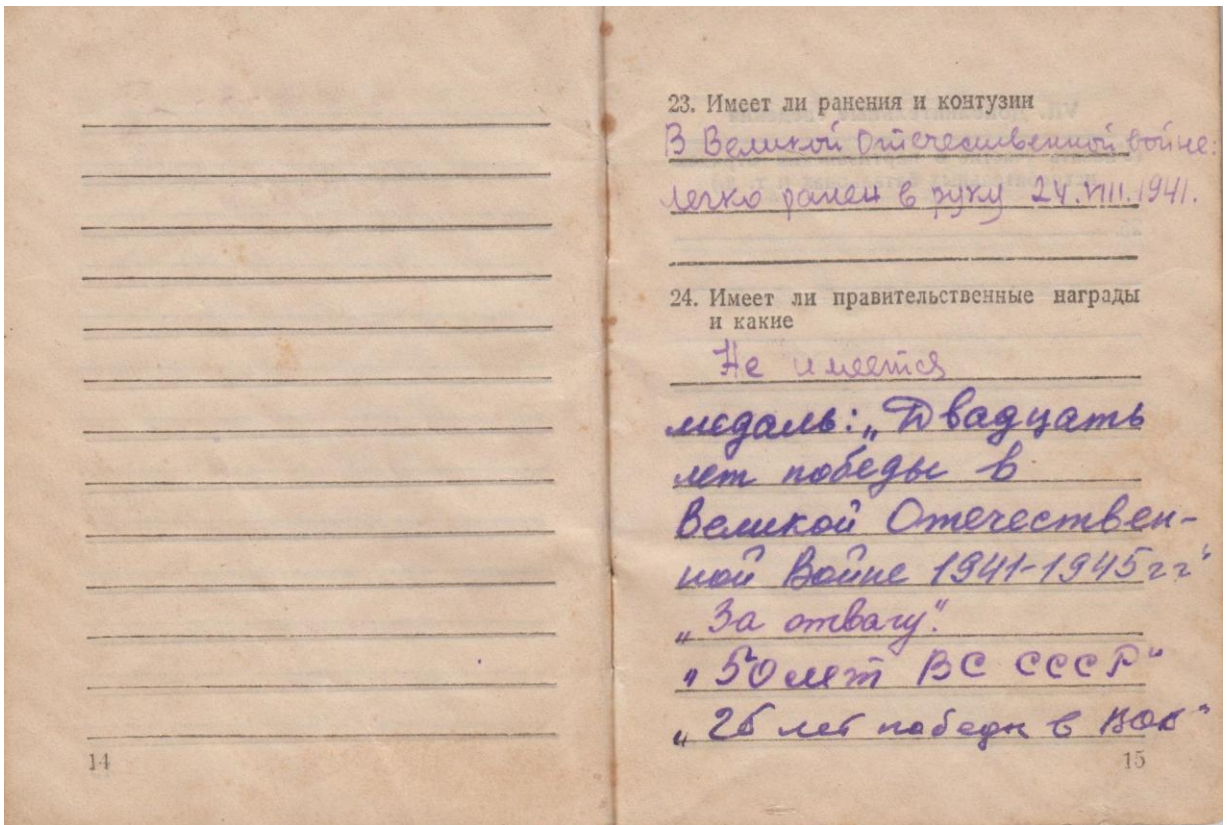 14
23. Имеет ли ранения и контузии
В Великой Отечественной войне:
легко ранен в руку 24.VIII.1941.
24. Имеет ли правительственные награды
и какие
Не имеется
медаль: „Двадцать
лет победы в
Великой Отечествен-
ной Войне 1941-1945гг"
„За отвагу".
„50 лет ВС СССР"
„25 лет победы в ВОВ"
15